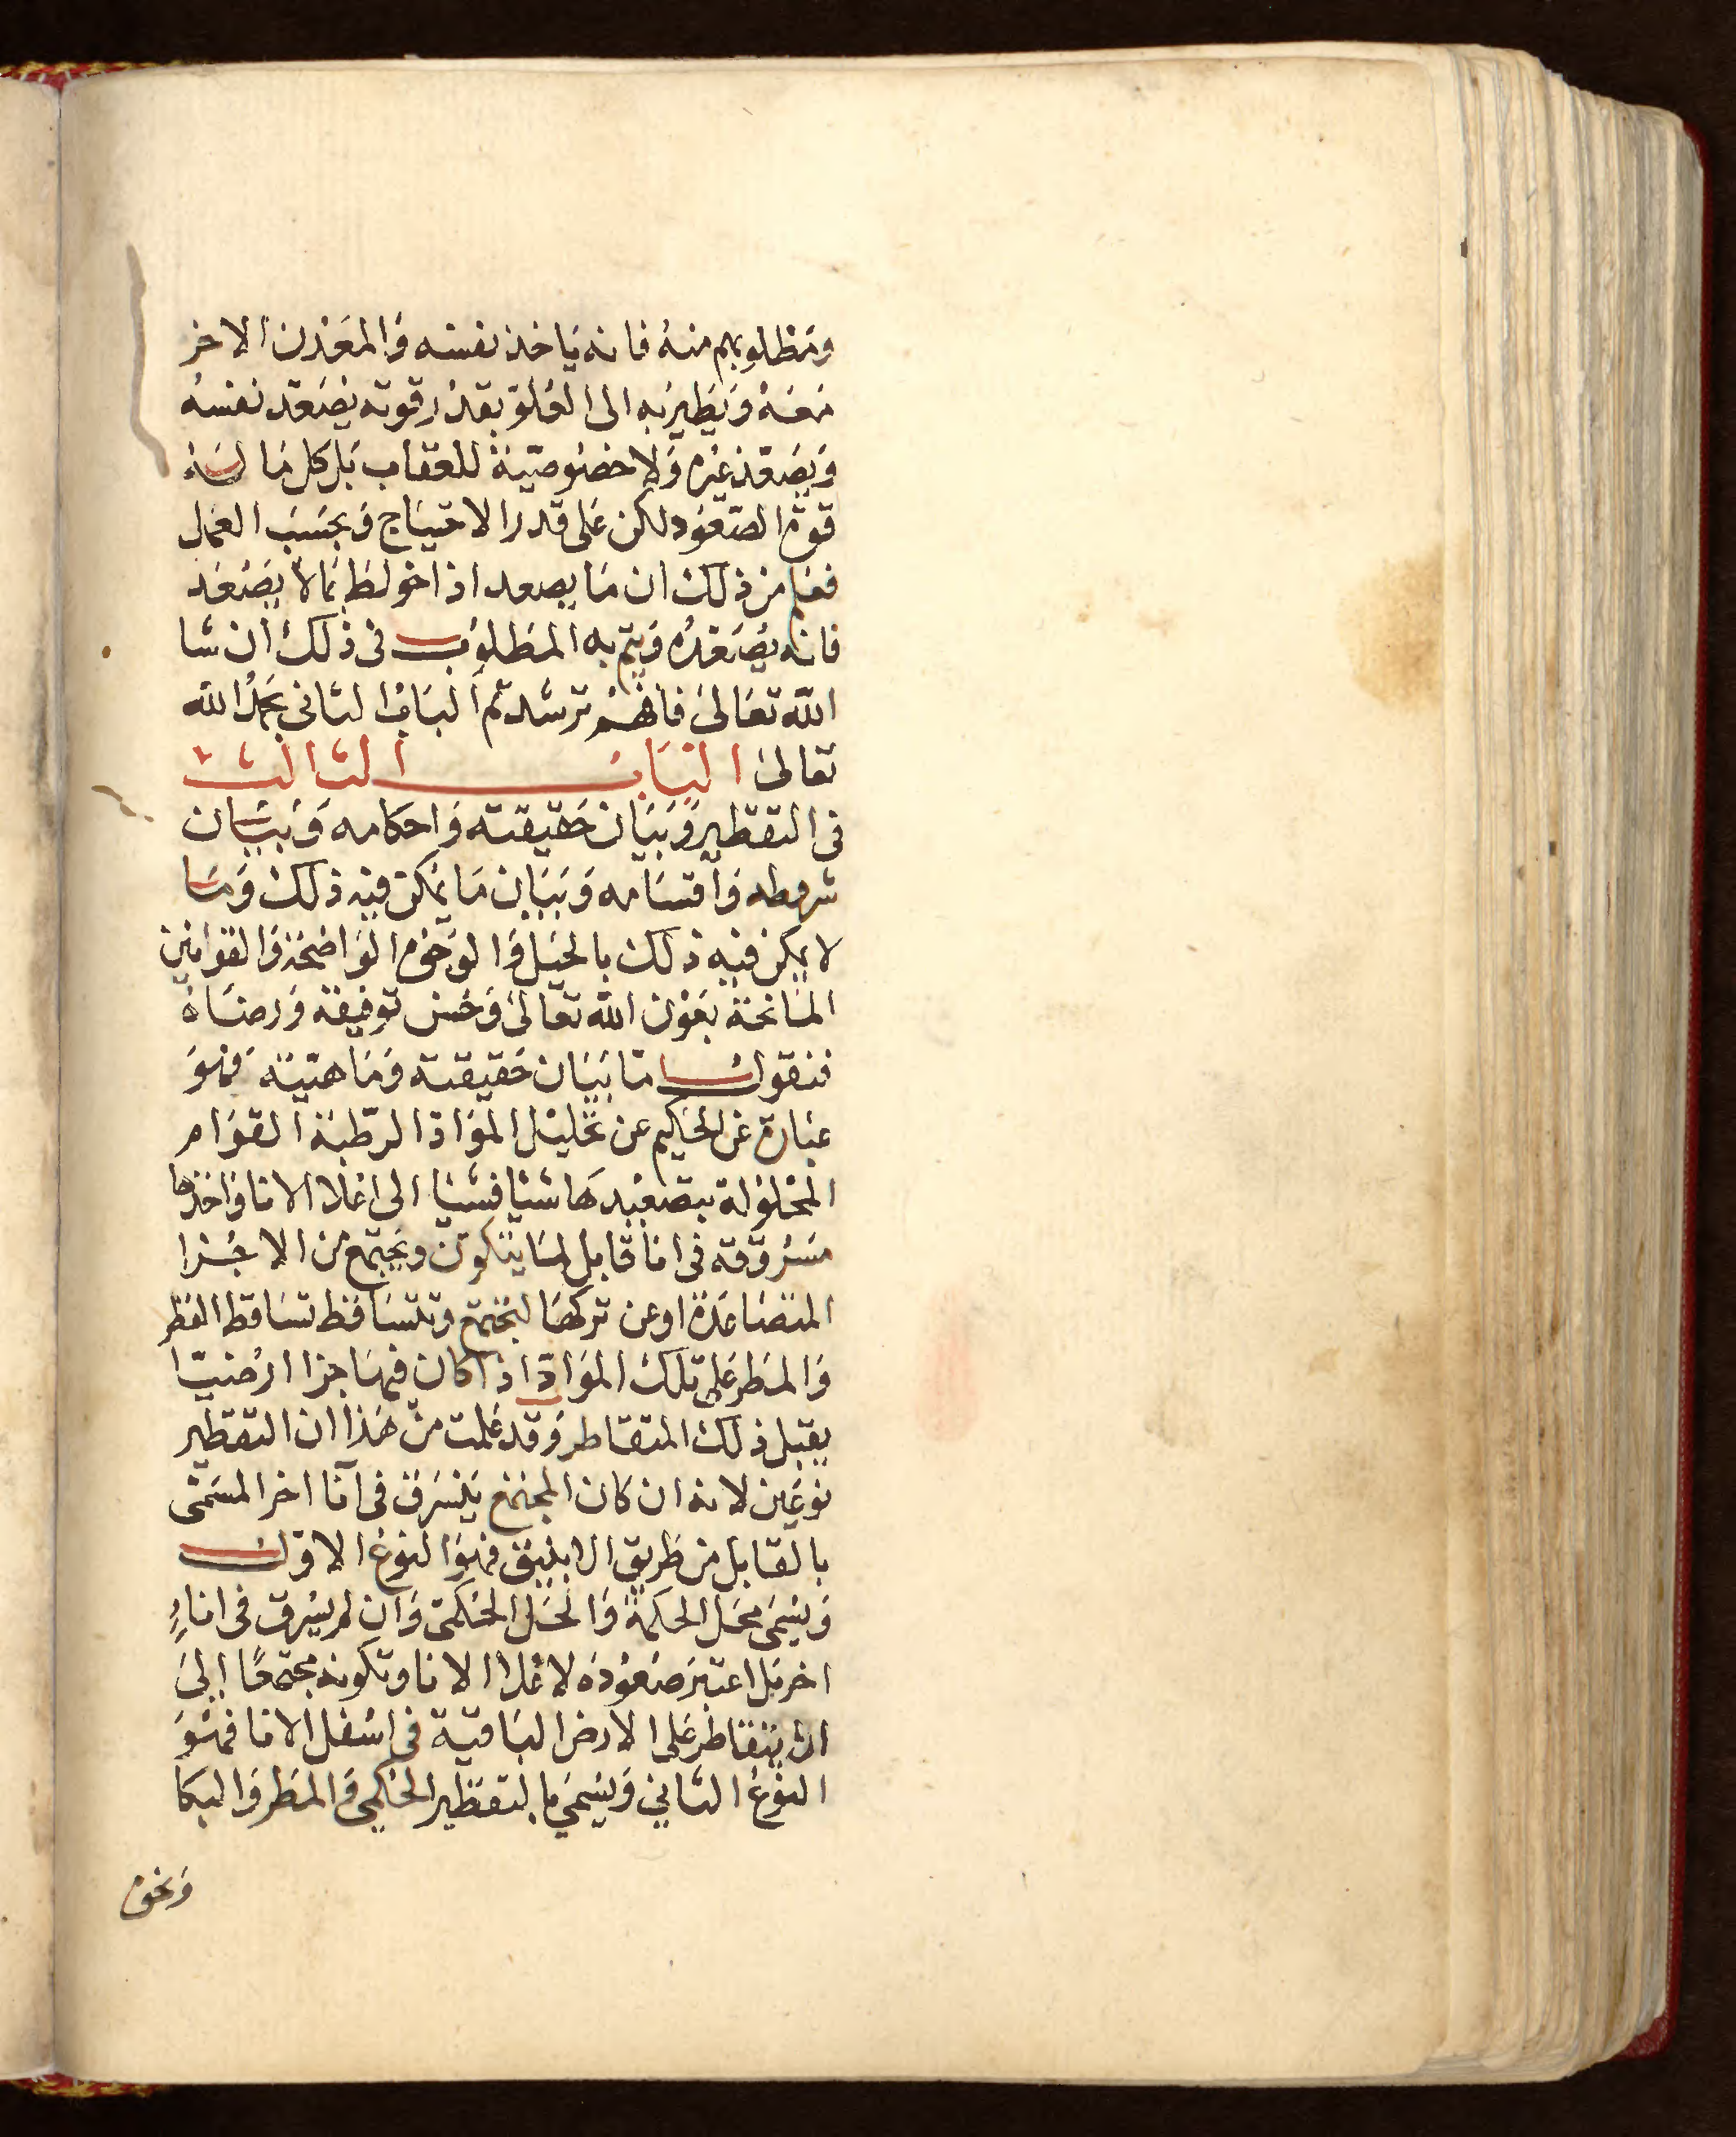 ومطلوبهم منه فانه ياخذ نفسه والمعدن الاخر
معه ويطير به الى العلو بقدر قوته يصعد نفسه
ويصعد غيره ولا خصوصية للعقاب بل كل ما له
قوة الصعود لكن على قدر الاحتياج وبحسب العمل
فعلم من ذلك ان ما يصعد اذا خولط بما لا يصعد
فانه يصعده ويتم به المطلوب فى ذلك ان شا
الله تعالى فافهم ترشد تم الباب الثانى بحمد الله
تعالى الباب الثالث
فى التقطير وبيان حقيقته واحكامه وبيان
شروطه واقسامه وبيان ما يمكن فيه ذلك وما
لا يمكن فيه ذلك بالحيل والوجوه الواضحة والقوانين
المانحة بعون الله تعالى وحسن توفيقه ورضاه
فنقول اما بيان حقيقته وماهيته فهو
عبارة عن الحاكيم عن تحليل المواد الرطبة القوام
المحلولة بتصعيدها شيا فشيا الى اعلا الانا واخذها
مسروقة فى انا قابل لما يتكون ويجتمع من الاجزا
المتصاعدة او عن تركها لتجتمع وتتساقط تساقط القطر
والمطر على تلك المواد اذا كان فيها جزا ارضيا
يقبل ذلك المتقاطر وقد علمت من هذا ان التقطير
نوعين لانه ان كان المجتمع ينسرق فى آنا اخر المسمى
بالقابل من طريق الانبيق فهو النوع الاول
ويسمى محل الحكمة والحل الحكمى وان لم يسرق فى اناء
اخر بل اعتبر صعوده لاعلا الانا وتكونه مجتمعا الى
ان يتقاطر على الارض الباقية فى اسفل الانا فهو
النوع الثاني ويسمي بالتقطير الحكمي والمطر والبكا
ونحو